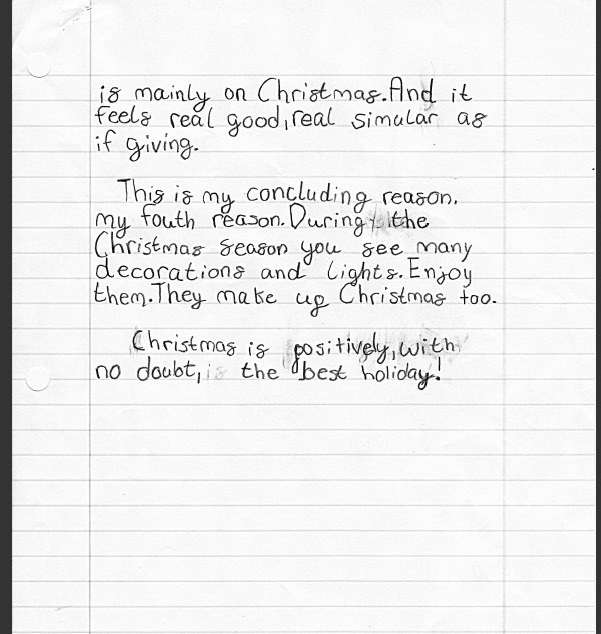 is mainly on Christmas.And it
feels real good,real simular as
if giving.
This is my concluding reason.
my fouth reason.During the
Christmas season you see many
decorations and lights.Enjoy
them.They make up Christmas too.
Christmas is positively,with
no doubt, is the best holiday!